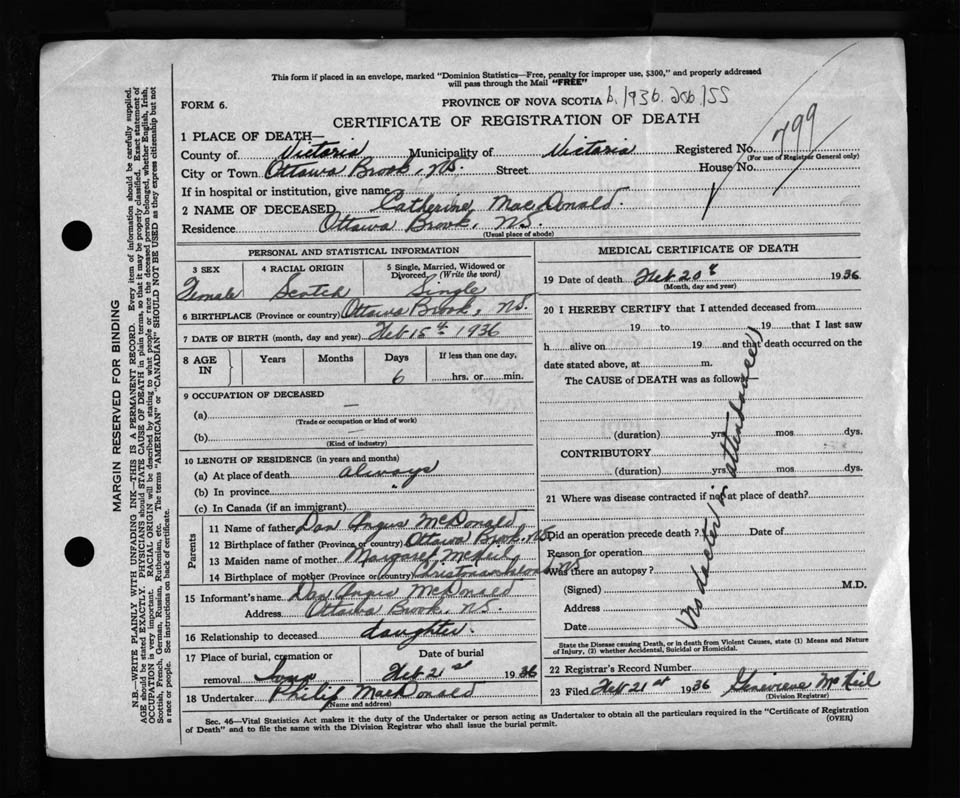 This form if placed in an envelope, marked "Dominion Statistics—Free, penalty for improper use, $300," and properly addressed
will pass through the Mail "FREE"
FORM 6.
PROVINCE OF NOVA SCOTIA b. 1936.
CERTIFICATE OF REGISTRATION OF DEATH
799
1 PLACE OF DEATH—
County of Victoria Municipality of Victoria Registered No.
(For use of Registrar General only)
City or Town Ottawa Brook, NS. Street House No.
If in hospital or institution, give name
2 NAME OF DECEASED Catherine MacDonald.
Residence Ottawa Brook, NS.
(Usual place of abode)
PERSONAL AND STATISTICAL INFORMATION
3 SEX 4 RACIAL ORIGIN 5 Single, Married, Widowed or
Divorced (Write the word)
Female Scotch Single
6 BIRTHPLACE (Province or country) Ottawa Brook, NS.
7 DATE OF BIRTH (month, day and year) Feb 15th 1936
8 AGE IN Years Months Days If less than one day,
6 hrs. or min.
9 OCCUPATION OF DECEASED
(a) —
(Trade or occupation or kind of work)
(b) —
(Kind of industry)
10 LENGTH OF RESIDENCE (in years and months)
(a) At place of death always
(b) In province "
(c) In Canada (if an immigrant)
Parents
11 Name of father Dan Angus McDonald
12 Birthplace of father (Province or country) Ottawa Brook, NS
13 Maiden name of mother Margaret McNeil
14 Birthplace of mother (Province or country) NS
15 Informant's name Dan Angus McDonald
Address Ottawa Brook, NS.
16 Relationship to deceased daughter.
17 Place of burial, cremation or Date of burial
removal Iona Feb 21st 1936
18 Undertaker Philip MacDonald
(Name and address)
MEDICAL CERTIFICATE OF DEATH
19 Date of death Feb 20th 1936
(Month, day and year)
20 I HEREBY CERTIFY that I attended deceased from
19 to 19 that I last saw
h alive on 19 and that death occurred on the
date stated above, at m.
The CAUSE of DEATH was as follows—
(duration) yrs. mos. dys.
CONTRIBUTORY
(duration) yrs. mos. dys.
No doctor in attendance
21 Where was disease contracted if not at place of death?
Did an operation precede death? Date of
Reason for operation
Was there an autopsy?
(Signed) M.D.
Address
Date
State the Disease causing Death, or in death from Violent Causes, state (1) Means and Nature
of Injury, (2) whether Accidental, Suicidal or Homicidal.
22 Registrar's Record Number
23 Filed Feb 21st 1936 Genevieve McNeil
(Division Registrar)
Sec. 46—Vital Statistics Act makes it the duty of the Undertaker or person acting as Undertaker to obtain all the particulars required in the "Certificate of Registration
of Death" and to file the same with the Division Registrar who shall issue the burial permit.
(OVER)
MARGIN RESERVED FOR BINDING
N.B.—WRITE PLAINLY WITH UNFADING INK—THIS IS A PERMANENT RECORD. Every item of information should be carefully supplied.
AGE should be stated EXACTLY. PHYSICIANS should STATE CAUSE OF DEATH in plain terms, so that it may be properly classified. Exact statement of
OCCUPATION is very important. RACIAL ORIGIN will be described by stating to what people or race the deceased person belonged, whether English, Irish,
Scottish, French, German, Russian, Ruthenian, etc. The terms "AMERICAN" or "CANADIAN" SHOULD NOT BE USED as they express citizenship but not
a race or people. See instructions on back of certificate.